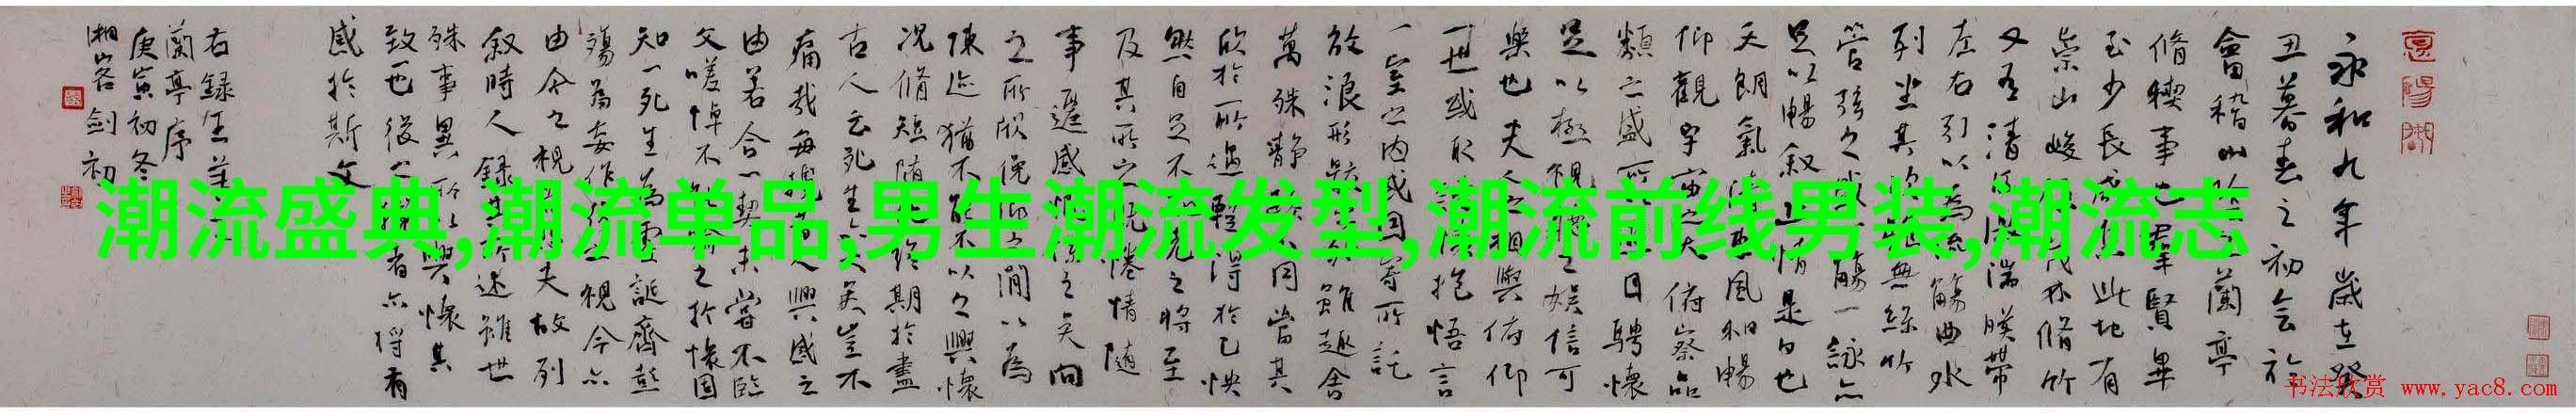 永和九年歲在癸
丑暮春之初会於
會稽山陰之蘭亭
脩稧事也羣賢畢
至少長咸集此地有
崇山峻領茂林脩竹
又有清流激湍暎帶
左右引以為流觴曲水
列坐其次雖無絲竹
管弦之盛一觴一詠亦
足以暢叙幽情是日也
天朗氣清惠風和暢
仰觀宇宙之大俯察品
類之盛所以遊目騁懷
足以極視聽之娱信可
樂也夫人之相與俯仰
一世或取諸懷抱悟言
一室之内或因寄所託
放浪形骸之外雖趣舍
萬殊静躁不同當其
欣於所遇蹔得於己怏
然自足不知老之將至
及其所之既惓情随
事遷感慨係之矣向
之所欣俛仰之間以為
陳迹猶不能不以之興懷
况脩短随化終期於盡
古人云死生亦大矣豈不
痛哉每攬昔人興感之
由若合一契未嘗不臨
文嗟悼不能喻之於懷固
知一死生為虚誕齊彭
殤為妄作後之視今亦
由今之視昔悲夫故列
叙時人録其所述雖世
殊事異所以興懷其
致一也後之攬者亦將有
感於斯文
右録王羲之
蘭亭序
庚寅初冬
湘客剑初
潮流盛典,潮流单品,男生潮流发型,潮流前线男装,潮流志
书法欣赏 www.yac8.com